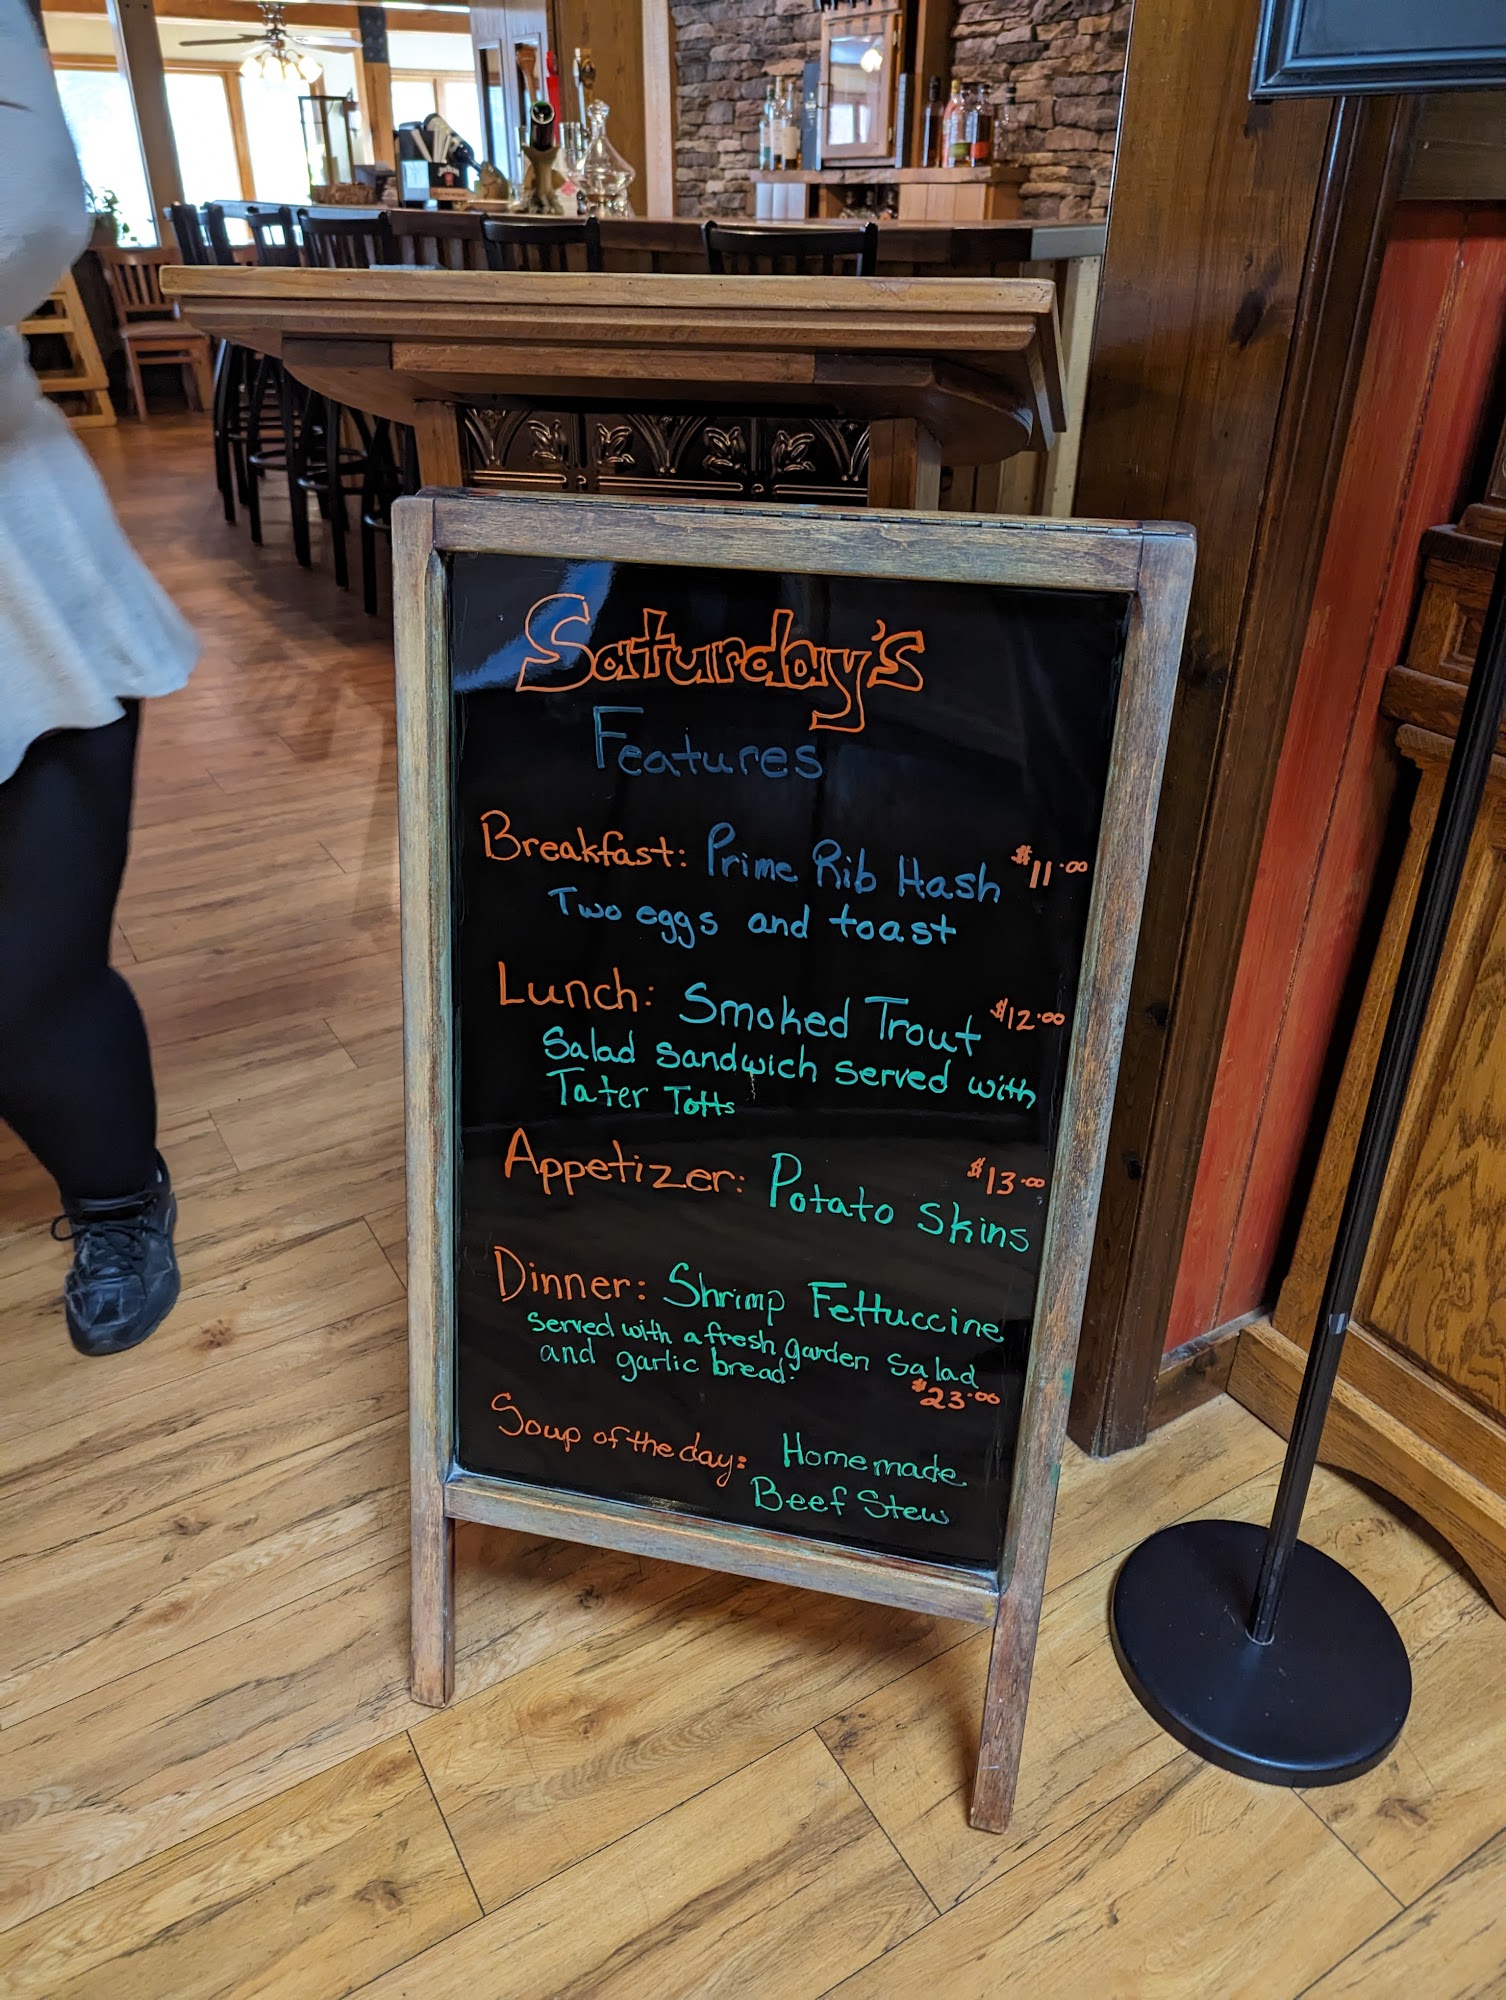 Saturday's
Features
Breakfast: Prime Rib Hash $11.00
Two eggs and toast
Lunch: Smoked Trout $12.00
Salad sandwich served with
Tater Totts
Appetizer: Potato Skins $13.00
Dinner: Shrimp Fettuccine
served with a fresh garden salad
and garlic bread.
$23.00
Soup of the day: Homemade
Beef Stew